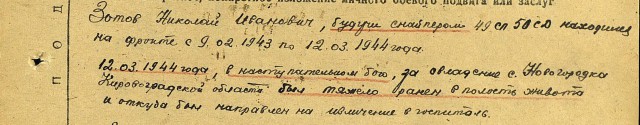 изложение личного боевого подвига или заслуг
Зотов Николай Иванович, будучи снайпером 49 сп 50 СД находился
на фронте с 9.02.1943 по 12.03.1944 года.
12.03.1944 года, в наступательном бою, за овладение с. Новогородка
Кировоградской области был тяжело ранен в полость живота
и откуда был направлен на излечение в госпиталь.
П О Д